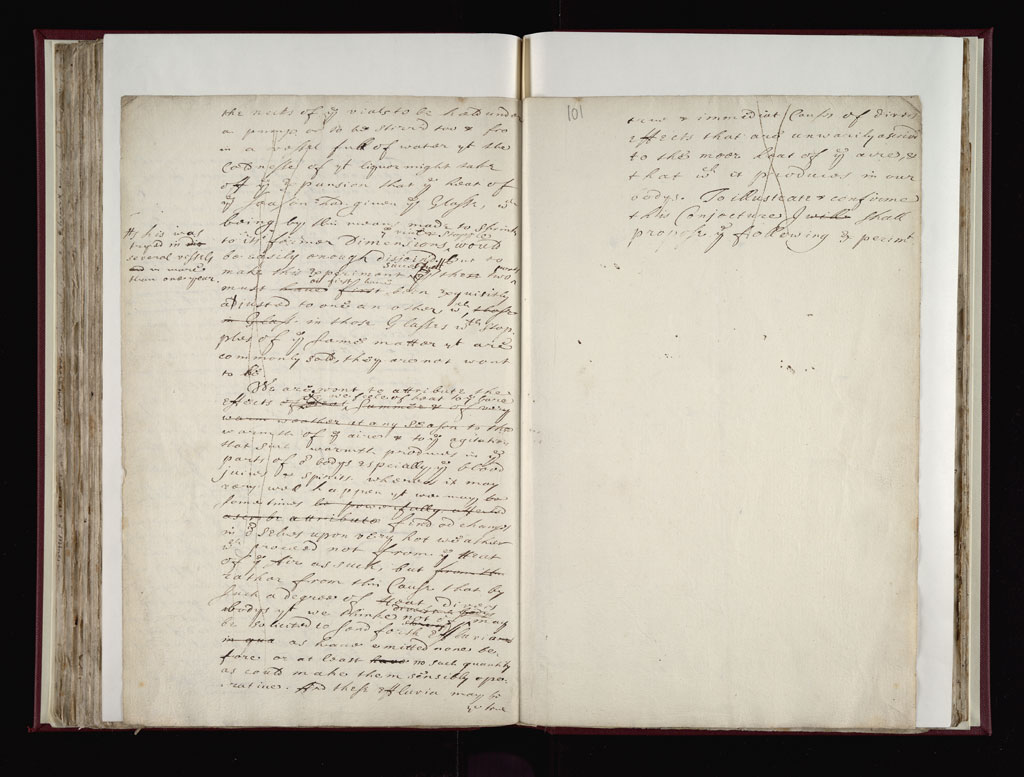 the necks of yᵉ vials to be held under
a pump or to be stirrd too & fro
in a vessel full of water yt the
coldnesse of yt liquor might take
off yᵉ Expansion that yᵉ heat of
yᵉ season had given yᵉ Glasse, wᶜʰ
being by this means made to shrink
to its former Dimensions would
be easily enough
make this experiment these two
must have first been exquisitly
adjusted to one an other, wᶜʰ, those
in Glasse in those Glasses wᵗʰ Stop
ples of yᵉ same matter yt are
commonly sold, they are not wont
to be.
This was
tryed in
several vessels
and in more
than one year.
We are wont to attribute the
Effects of Heat, Summer & of very
warm weather at any season to the
warmth of yᵉ aire & to yᵉ agitation
that such warmth produces in yᵉ
parts of oʳ bodys especially yᵉ blood
juices & spirits. whereas it may
very well happen yt we may be
sometimes be powerfully affected
attribute find changes
in oʳ selves upon very hot weather
wᶜʰ proceed not from yᵉ Heat
of yᵉ Air as such, but from the
rather from this Cause that by
such a degree of Heat divers
bodys yt we thinke not of may
be sollicited to send forth Effluvia
in qua as have emitted none be
fore or at least have no such quantity
as could make them sensibly opera
rative. And these Effluvia may be
yᵉ true
101
true & immediat Cause of divers
effects that are unwarily ascribd
to the meer heat of yᵉ aire, &
that wᶜʰ it produces in our
bodys. To illustrate & confirme
this Conjecture I will shall
propose yᵉ following Experimᵗ